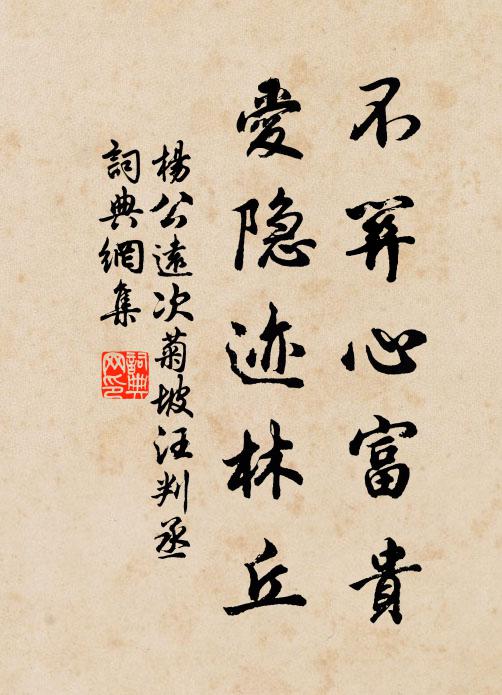 不關心富貴
愛隐迹林丘
楊公遠次菊坡汪判丞
詞典網集
詞典网印